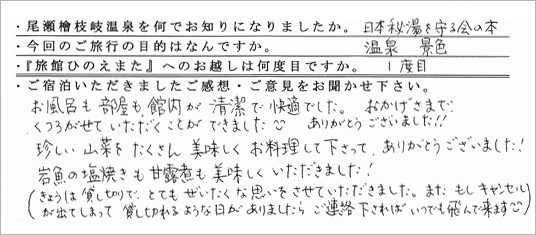 ・尾瀬檜枝岐温泉を何でお知りになりましたか。 日本秘湯を守る会の本
・今回のご旅行の目的はなんですか。 温泉 景色
・『旅館ひのえまた』へのお越しは何度目ですか。 1度目
・ご宿泊いただきましたご感想・ご意見をお聞かせ下さい。
お風呂も部屋も館内が清潔で快適でした。おかげさまで
くつろがせていただくことができました☺ ありがとうございました!!
珍しい山菜をたくさん美味しくお料理して下さって、ありがとうございました!
岩魚の塩焼きも甘露煮も美味しくいただきました!
(きょうは貸し切りで、とてもぜいたくな思いをさせていただきました。また もし キャンセル
が出てしまって 貸し切れるような日がありましたら ご連絡下さればいつでも飛んで来ます☺)